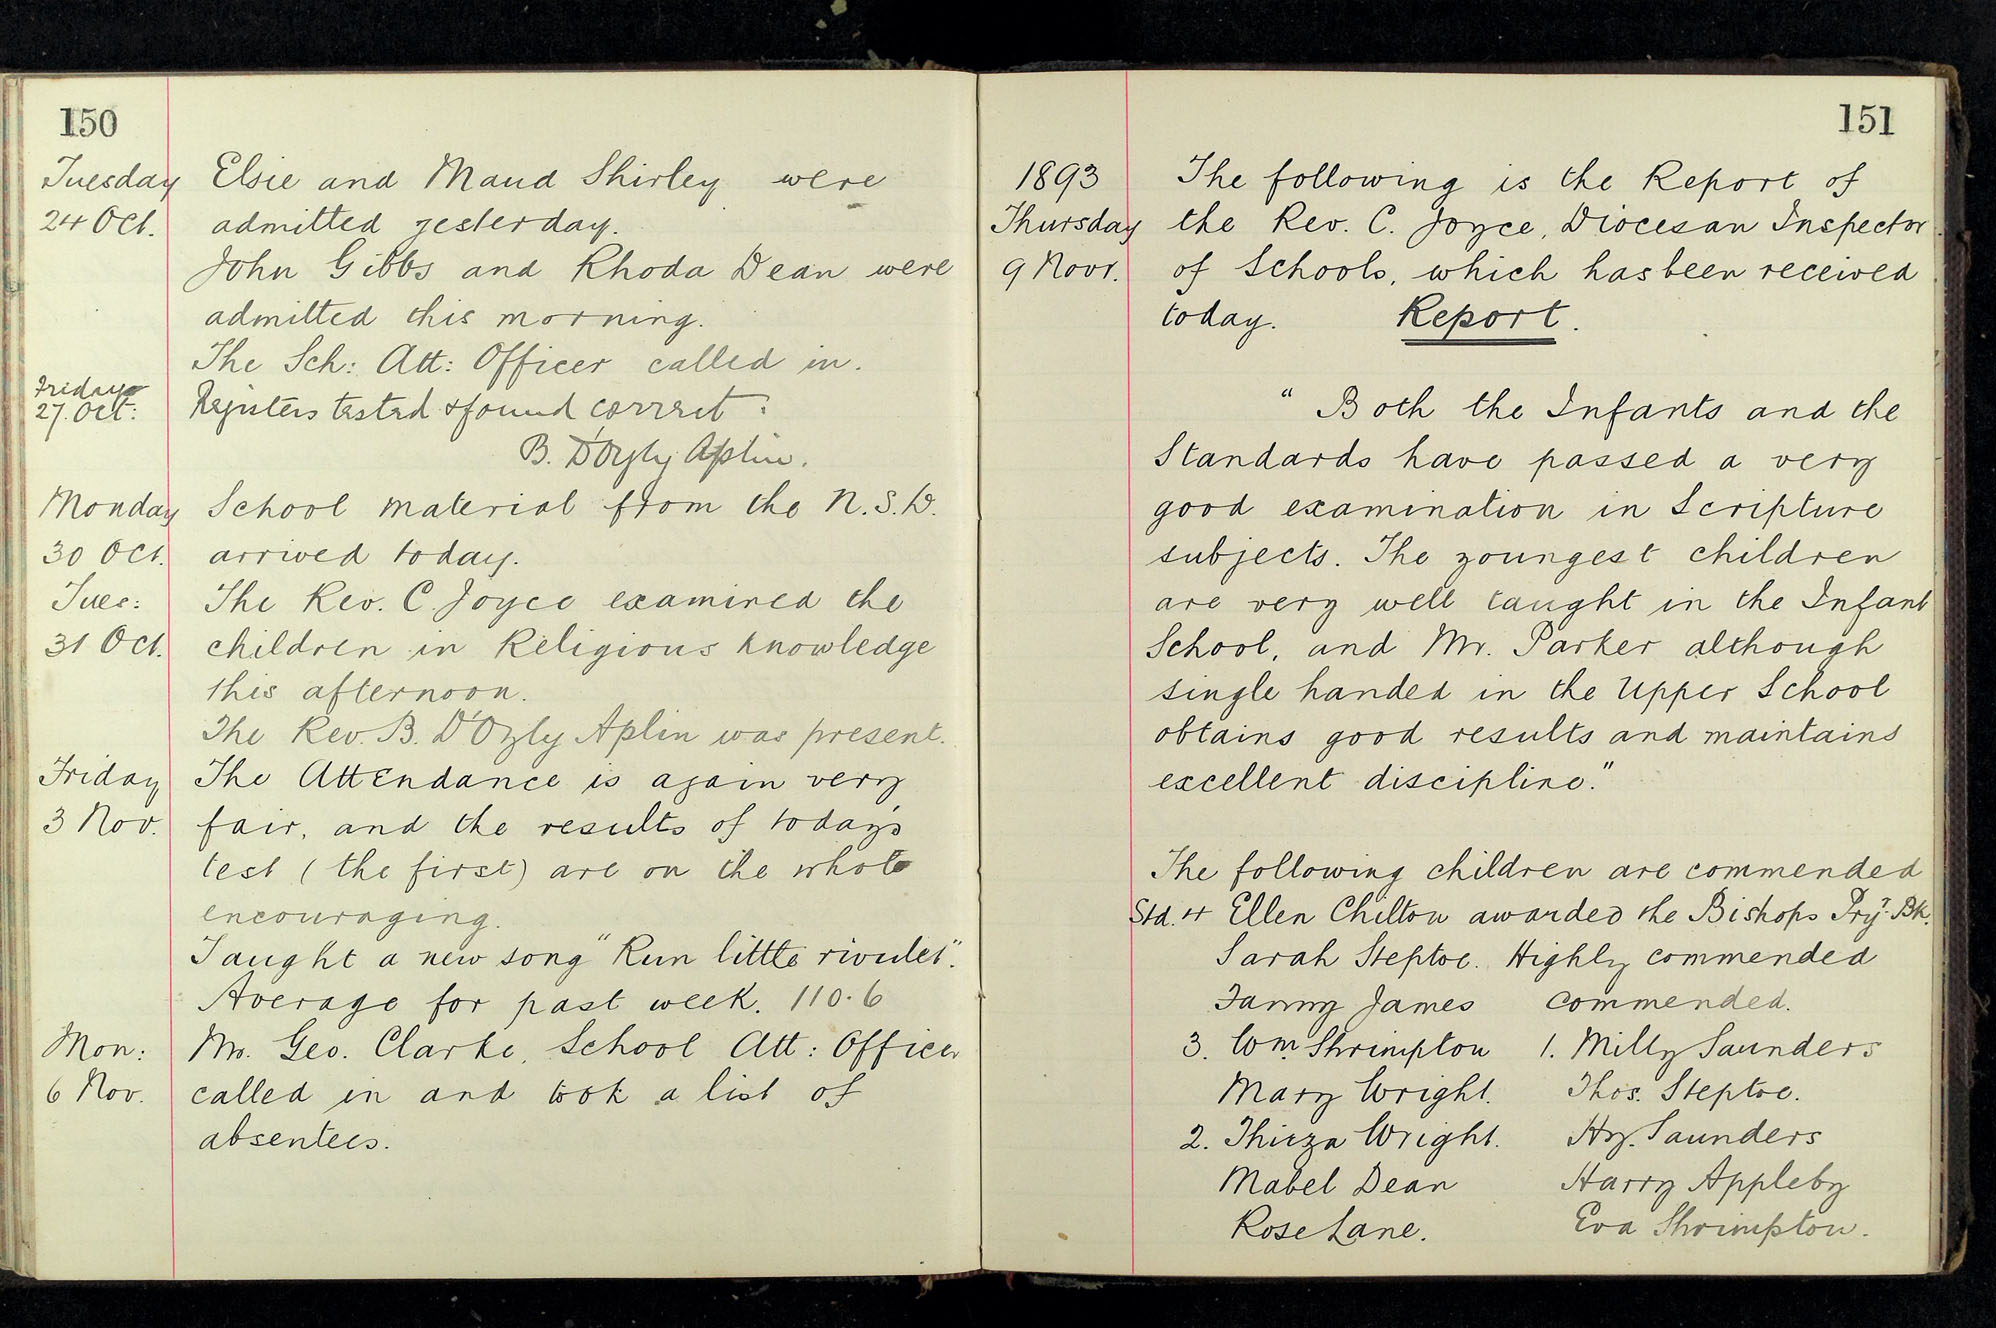 150
Tuesday Elsie and Maud Shirley were
24 Oct. admitted yesterday.
John Gibbs and Rhoda Dean were
admitted this morning.
The Sch: Att: Officer called in.
Friday
27. Oct: Registers tested & found correct:
B. D'Oyly Aplin.
Monday School material from the N.S.D.
30 Oct. arrived today.
Tues: The Rev. C. Joyce examined the
31 Oct. children in Religious knowledge
this afternoon.
The Rev. B. D'Oyly Aplin was present.
Friday The Attendance is again very
3 Nov. fair, and the results of today's
test (the first) are on the whole
encouraging.
Taught a new song "Run little rivulet".
Average for past week. 110.6
Mon: Mr. Geo. Clarke, School Att: Officer
6 Nov. called in and took a list of
absentees.
151
1893 The following is the Report of
Thursday the Rev. C. Joyce, Diocesan Inspector
9 Novr. of Schools, which has been received
today. Report.
" Both the Infants and the
Standards have passed a very
good examination in Scripture
subjects. The youngest children
are very well taught in the Infant
School, and Mr. Parker although
single handed in the Upper School
obtains good results and maintains
excellent discipline."
The following children are commended
Std. 4 Ellen Chilton awarded the Bishops Pry.r Bk.
Sarah Steptoe. Highly commended
Fanny James commended.
3. Wm. Shrimpton 1. Milly Saunders
Mary Wright. Thos. Steptoe.
2. Thirza Wright. Hy. Saunders
Mabel Dean Harry Appleby
Rose Lane. Eva Shrimpton.